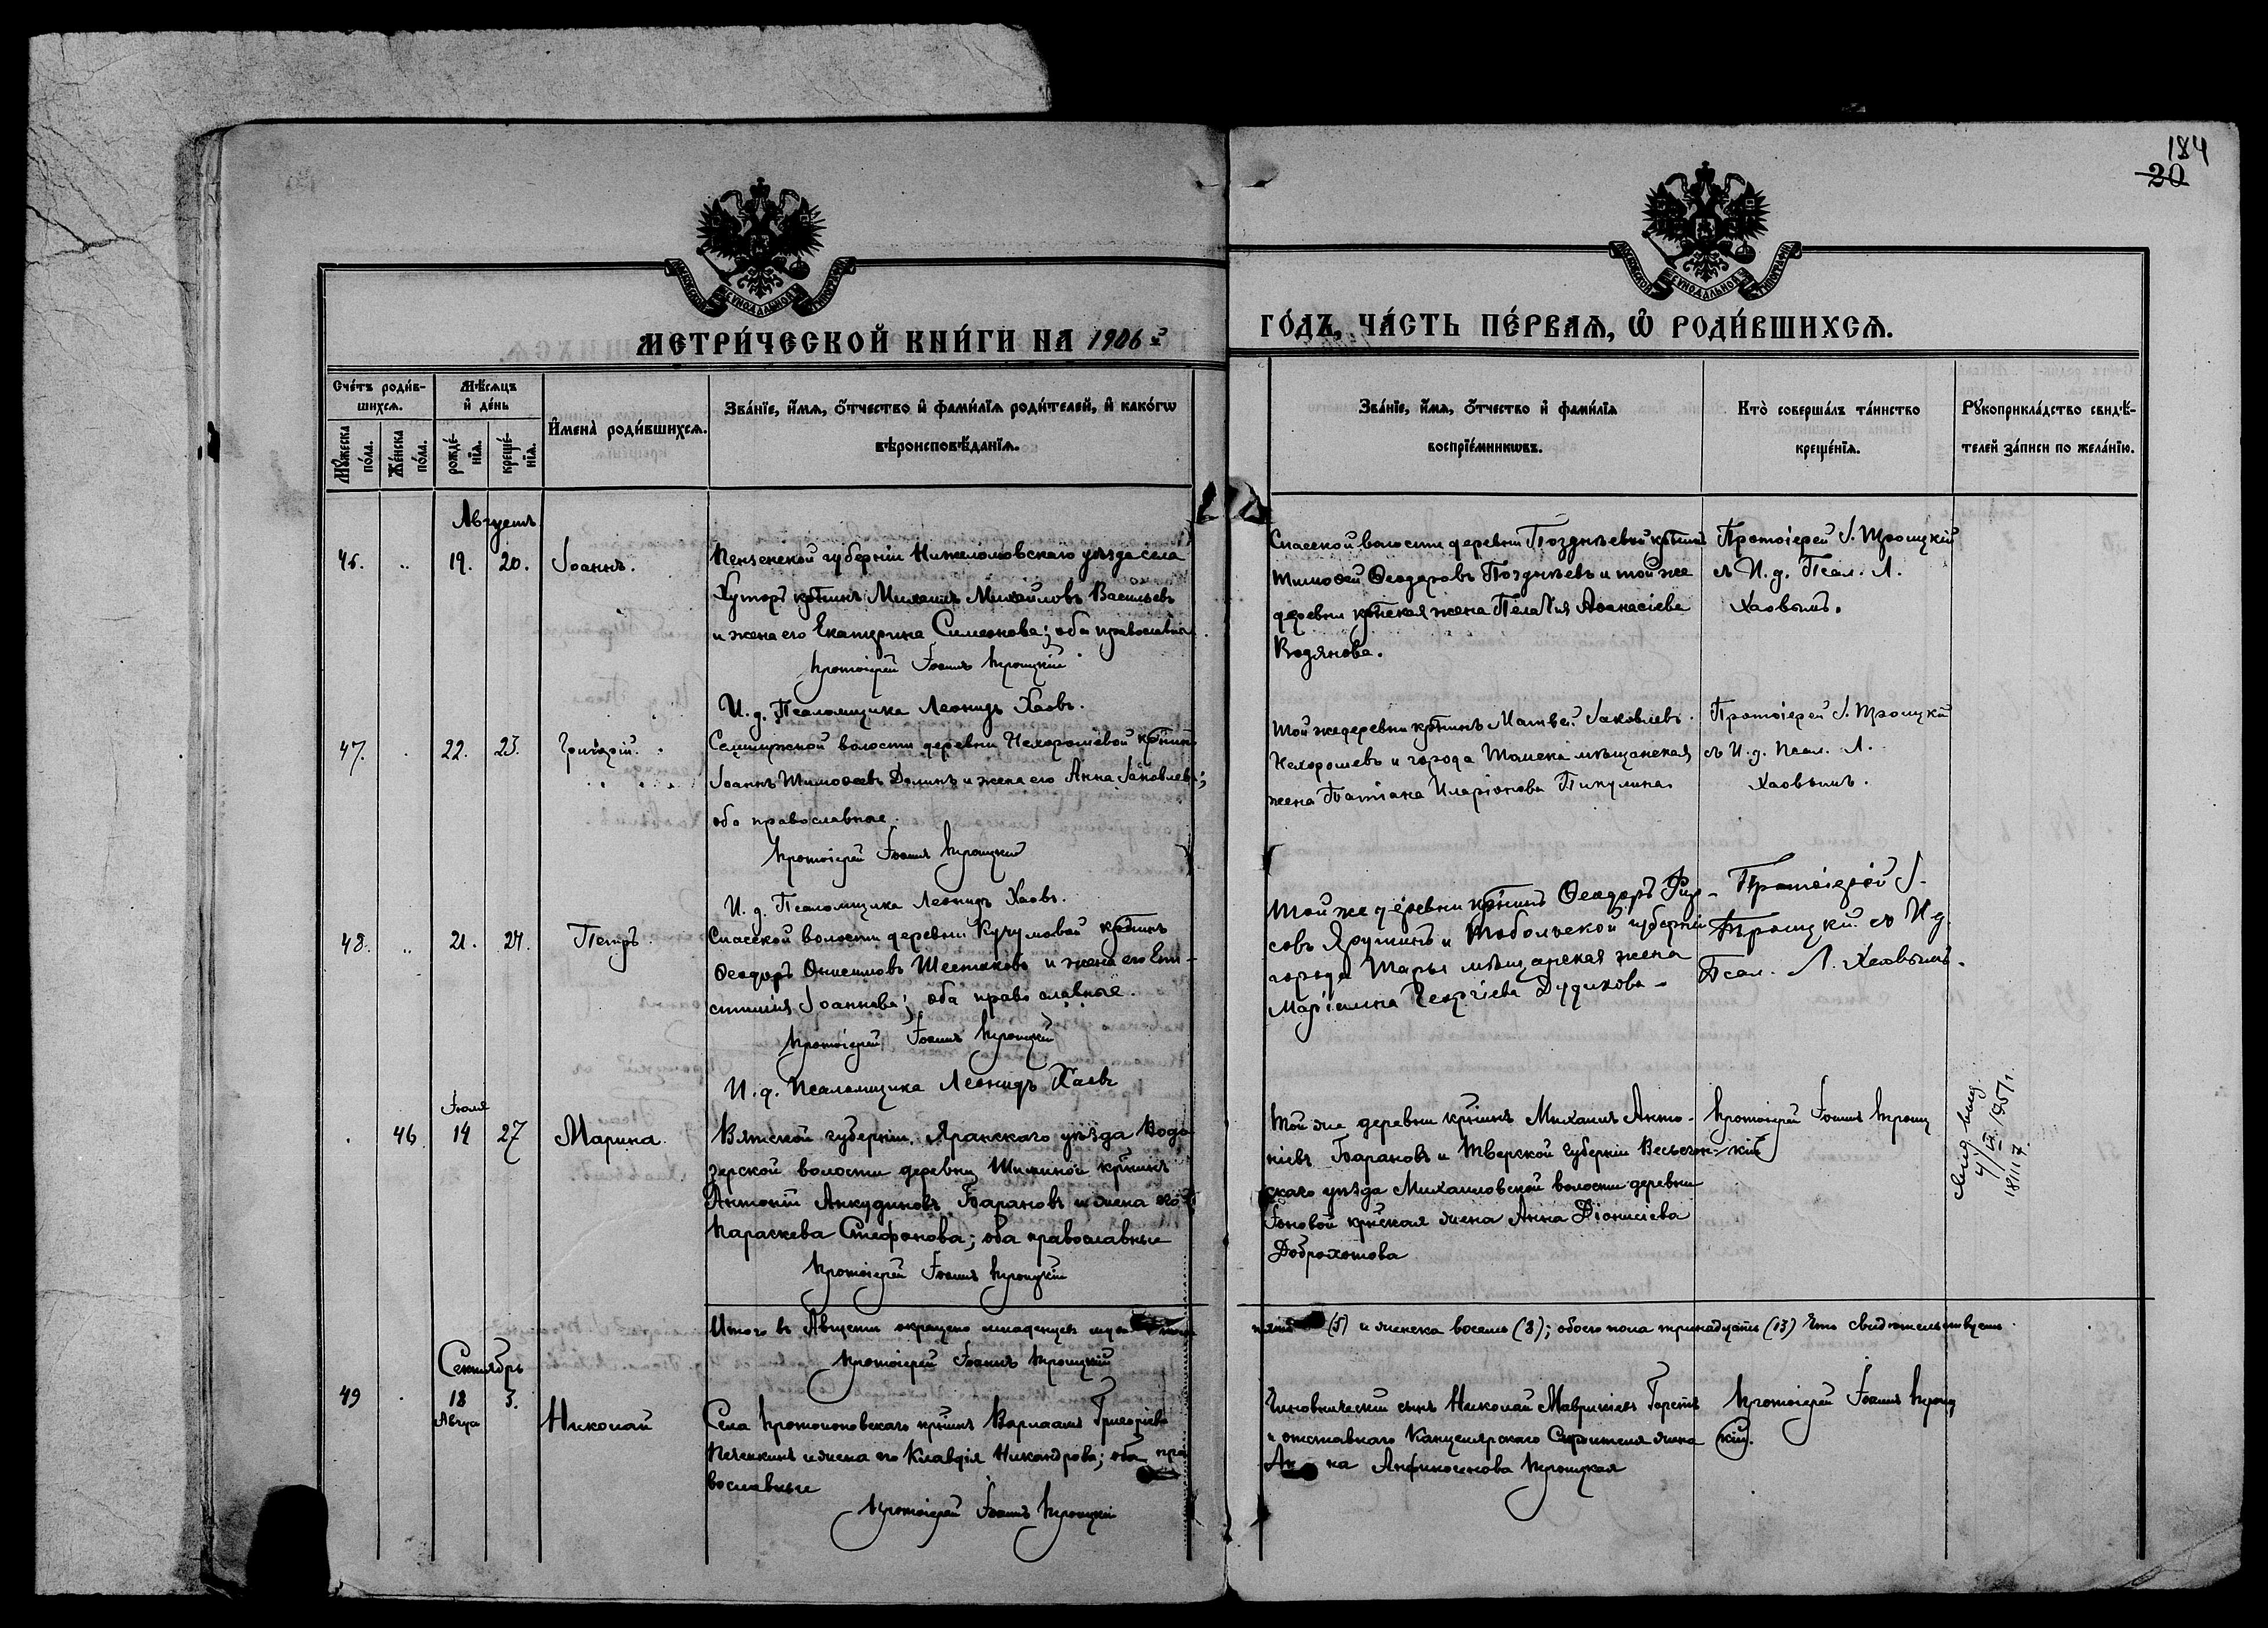 184
20
МОСКОВСКОЙ СѴНОДАЛЬНОЙ ТИПОГРАФІИ
МОСКОВСКОЙ СѴНОДАЛЬНОЙ ТИПОГРАФІИ
МЕТРИ́ЧЕСКОЙ КНИ́ГИ НА 1906 й
ГО́ДЪ, ЧА́СТЬ ПЕ́РВАѦ, Ѽ РОДИ́ВШИХСѦ.
Сче́тъ роди́в-
шихсѧ.
Мꙋ́жеска по́ла.
Же́нска по́ла.
Мѣ́сѧцъ
и҆ де́нь
рожде́-
нїѧ.
креще́-
нїѧ.
И҆мена̀ роди́вшихсѧ.
Зва́нїе, и҆́мѧ, ѻ҆́тчество и҆ фами́лїѧ роди́телей, и҆ како́гѡ
вѣроисповѣ́данїѧ.
Зва́нїе, и҆́мѧ, ѻ҆́тчество и҆ фами́лїѧ
воспрїе́мникѡвъ.
Кто̀ соверша́лъ та́инство
креще́нїѧ.
Рꙋкоприкла́дство свидѣ́-
телей за́писи по жела́нїю.
Августъ
46. .. 19. 20. Іоаннъ.
Пензенской губерніи Нижеломовскаго уѣзда села
Хуторъ кр-нинъ Михаилъ Михайловъ Васильевъ
и жена его Екатерина Симеонова; оба православные.
Протоіерей Іоаннъ Троицкій
И. д. Псаломщика Леонидъ Хаовъ.
Спасской волости деревни Позднѣевой кр-нинъ
Тимоѳей Ѳеодоровъ Позднѣевъ и той же
деревни кр-нская жена Пелагія Аѳанасіева
Водянова.
Протоіерей І. Троицкій
съ И. д. Псал. Л.
Хаовымъ.
47. . 22. 23. Григорій.
Семилужной волости деревни Нехорошевой кр-нинъ
Іоаннъ Тимоѳеевъ Деминъ и жена его Анна Іаковлева;
оба православные.
Протоіерей Іоаннъ Троицкій
И. д. Псаломщика Леонидъ Хаовъ.
Той же деревни кр-нинъ Матвей Іаковлевъ
Нехорошевъ и города Томска мѣщанская
жена Татіана Иларіонова Пикулина.
Протоіерей І. Троицкій
съ И. д. Псал. Л.
Хаовымъ.
48. .. 21. 24. Петръ.
Спасской волости деревни Кучумовой кр-нинъ
Ѳеодоръ Онисимовъ Шестаковъ и жена его Епи-
стимія Іоаннова; оба православные.
Протоіерей Іоаннъ Троицкій
И. д. Псаломщика Леонидъ Хаовъ
Той же деревни кр-нинъ Ѳеодоръ Фир-
совъ Ярутинъ и Тобольской губерніи
города Тары мѣщанская жена
Маріамна Георгіева Дудикова.
Протоіерей І.
Троицкій съ И. д.
Псал. Л. Хаовымъ.
Іюля
. 46 14 27 Марина.
Вятской губерніи, Яранскаго уѣзда Водо-
зерской волости деревни Шишиной кр-нинъ
Антоній Анкудиновъ Барановъ и жена его
Параскева Стефанова; оба православные
Протоіерей Іоаннъ Троицкій
Той же деревни кр-нинъ Михаилъ Анто-
ніевъ Барановъ и Тверской губерніи Весьегон-
скаго уѣзда Михаиловской волости деревни
Іоновой кр-нская жена Анна Діонисіева
Доброхотова
Протоіерей Іоаннъ Троиц-
кій
4/IX 1951 г.
Итого въ Августѣ окрещено младенцевъ муж
(5) и женска восемь (8); обоего пола тринадцать (13) Что свидѣтельствуемъ
Протоіерей Іоаннъ Троицкій
Сентябрь
49 . 18 3. Николай
Авгус
Села Протопоповскаго кр-нинъ Варлаамъ Григоріевъ
Печенкинъ и жена его Клавдія Никандрова; оба пра
вославные
Протоіерей Іоаннъ Троицкій
Чиновническій сынъ Николай Маврикіевъ
и отставнаго Канцелярскаго Служителя жена
Ан на Анфиногенова Троицкая
Протоіерей Іоаннъ Троиц
кій.